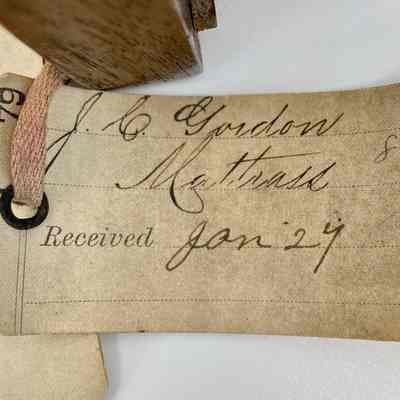 79
J. C. Gordon
Mattrass 8
Received Jan 27